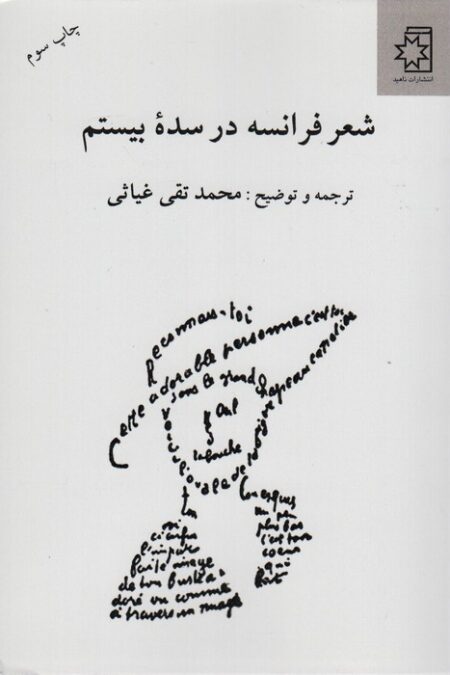 چاپ سوم
انتشارات ناهید
شعر فرانسه در سدهٔ بیستم
ترجمه و توضیح : محمد تقی غیاثی
Reconnais-toi
Cette adorable personne c'est toi
sous le grand chapeau canotier
Oeil
la bouche
Voici l'ovale de ta figure
ton
ci enfin
l'impar
faite image
de ton buste a
doré vu comme
à travers un nuage
un peu
plus bas
c'est ton
coeur
qui
bat